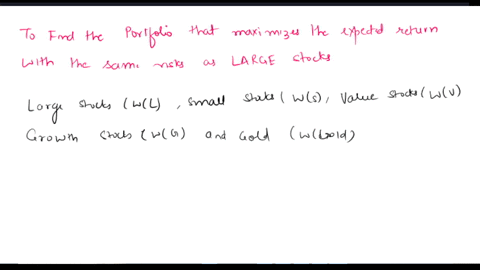 To Find the Portfolio that maximizes the expected return
with the same risks as LARGE stocks
Large stocks (W(L), small stocks (W(S), Value stocks (W(V)
Growth stocks (W(G) and Gold (W(Gold)